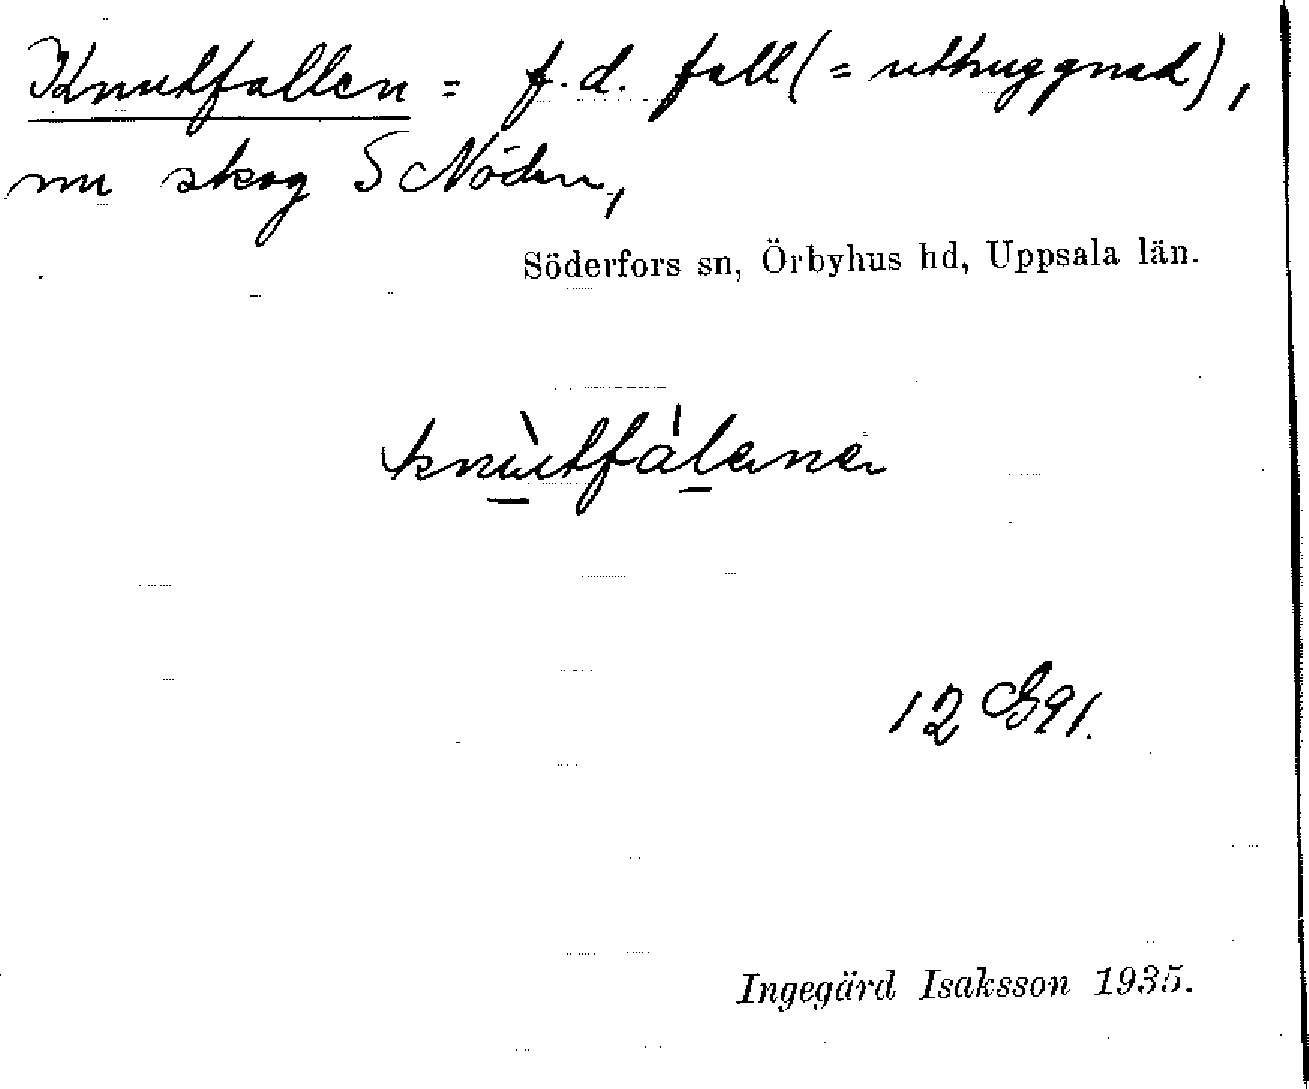 Knutfallen = f.d. fall (= uthuggnad),
nu skog S Nöden,
Söderfors sn, Örbyhus hd, Uppsala län.
knùtfàlana
12 G 91.
Ingegärd Isaksson 1935.